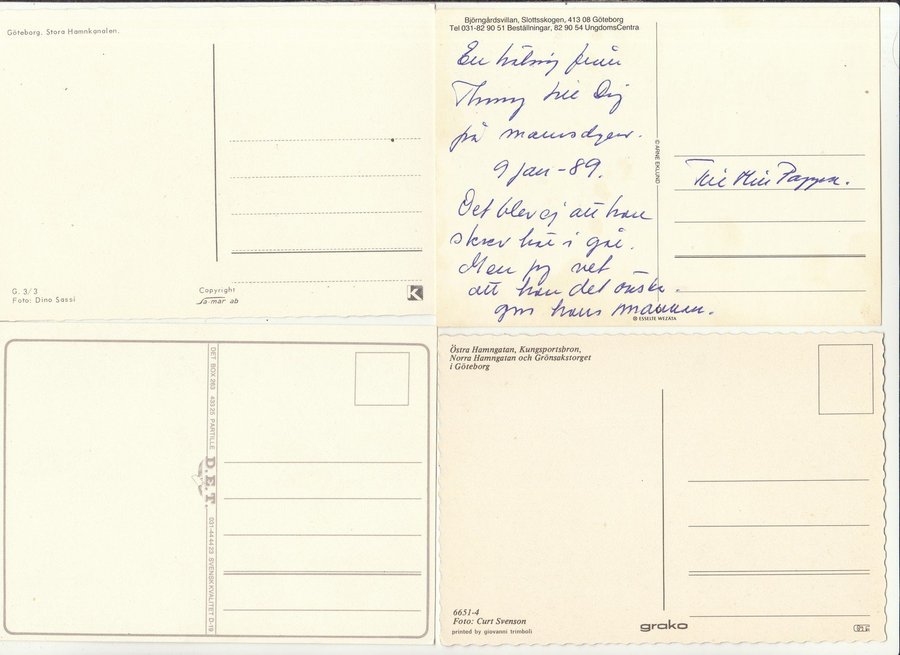 Göteborg. Stora Hamnkanalen.
G. 3/3
Foto: Dino Sassi
Copyright
Sa-mär ab
K
Björngårdsvillan, Slottsskogen, 413 08 Göteborg
Tel 031-82 90 51 Beställningar, 82 90 54 UngdomsCentra
En hälsning från
till Dig
på
9 jan -89.
Det blev ej att han
skrev här i går.
Men jag vet
att han det önska.
hans mamma.
© ARNE EKLUND
Till Min Pappa.
® ESSELTE WEZÄTA
DET BOX 263 43325 PARTILLE
D.E.T.
031-444423 SVENSKKVALITET D-19
Östra Hamngatan, Kungsportsbron,
Norra Hamngatan och Grönsakstorget
i Göteborg
6651-4
Foto: Curt Svenson
printed by giovanni trimboli
grako